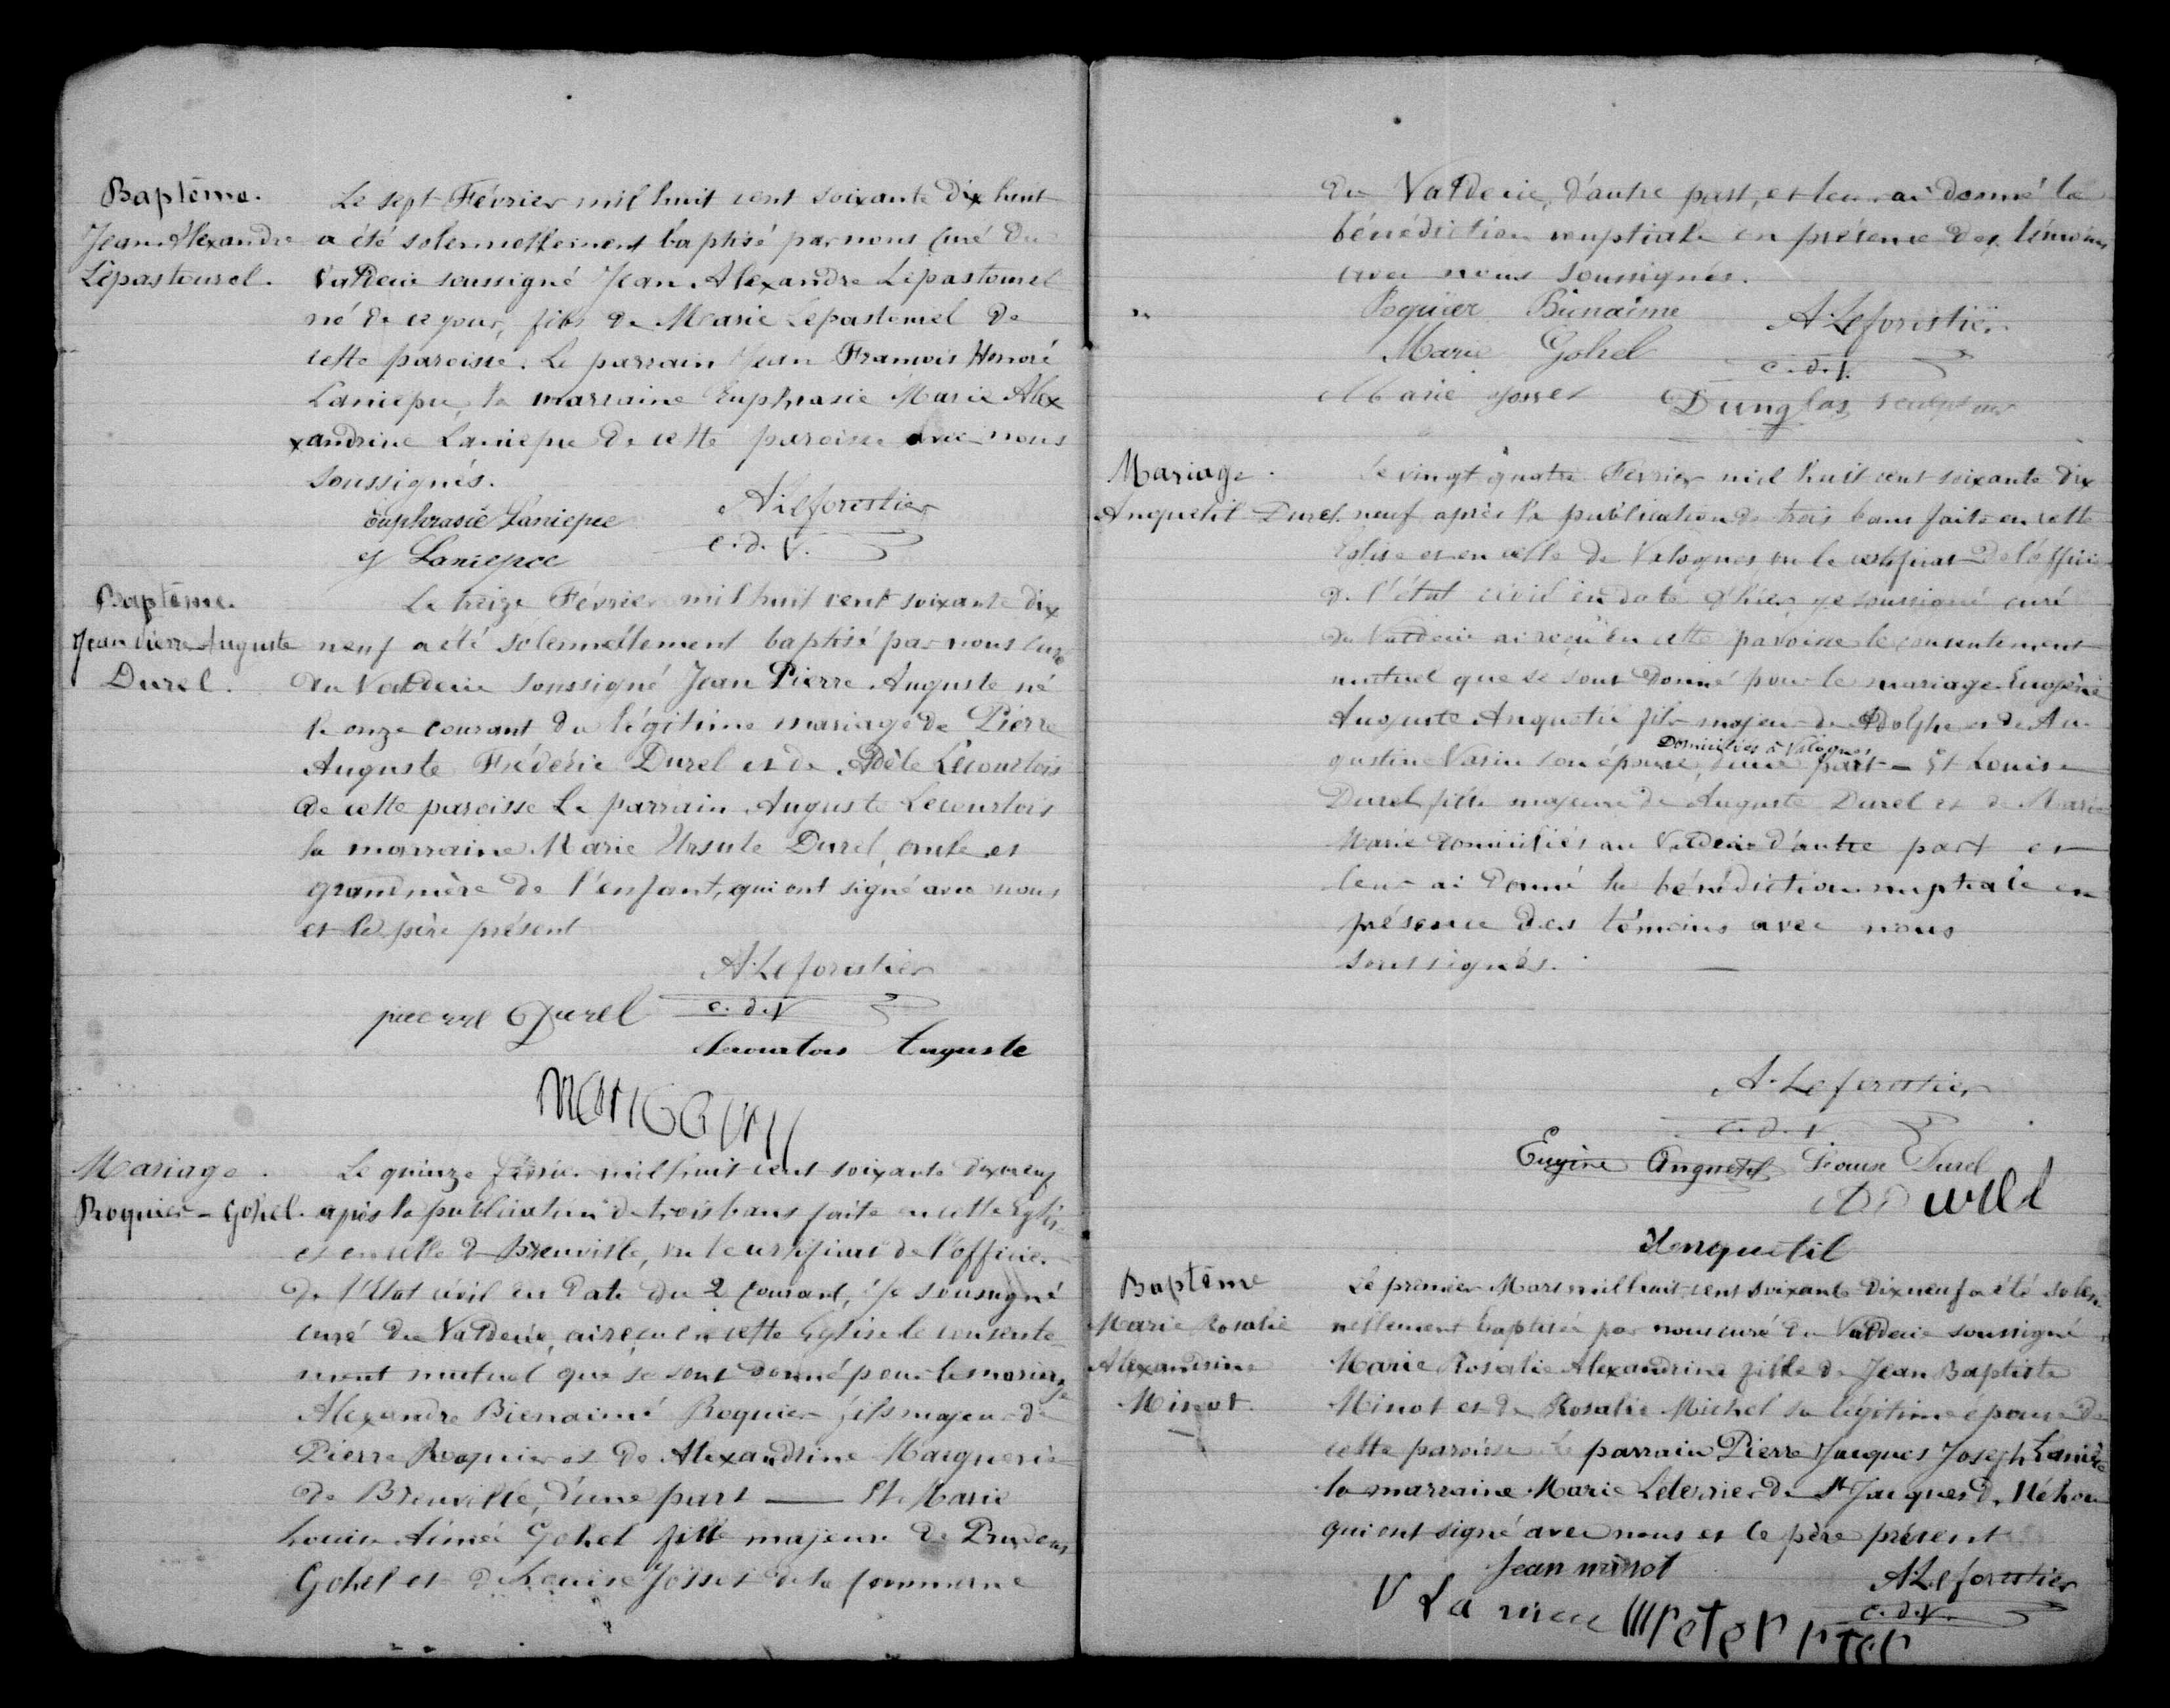 Baptême.
Jean Alexandre
Lepastourel.
Le sept Février mil huit cent soixante dix huit
a été solennellement baptisé par nous Curé du
Valdecie soussigné Jean Alexandre Lepastourel
né de ce jour, fils de Marie Lepastourel de
cette paroisse. Le parrain Jean François Honoré
Laniepce, la marraine Euphrasie Marie Alex
xandrine Laniepce de cette paroisse avec nous
soussignés.
Euphrasie Laniepce
A. Leforestier
c. d. V.
Laniepce
Baptême.
Jean Pierre Auguste
Durel.
Le treize Février mil huit cent soixante dix
neuf a été solennellement baptisé par nous curé
du Valdecie soussigné Jean Pierre Auguste né
le onze courant du légitime mariage de Pierre
Auguste Frédéric Durel et de Adèle Lecourtois
de cette paroisse Le parrain Auguste Lecourtois
la marraine Marie Ursule Durel, oncle et
grand mère de l'enfant, qui ont signé avec nous
et le père présent
A. Leforestier
c. d. V
pierre Durel
Lecourtois Auguste
Mariage.
Roquier - Gohel.
Le quinze février mil huit cent soixante dix neuf
après la publication de trois bans faite en cette Eglise
et en celle de Breuville, vu le certificat de l'officier
de l'Etat civil en date du 2 courant, je soussigné
curé du Valdecie, ai reçu en cette Eglise le consente
ment mutuel que se sont donné pour le mariage
Alexandre Bienaimé Roquier fils majeur de
Pierre Roquier et de Alexandrine Macquerie
de Breuville, d'une part — Et Marie
Louise Aimée Gohel fille majeure de Prudent
Gohel et de Louise Josset de la commune
du Valdecie, d'autre part, et leur ai donné la
bénédiction nuptiale en présence des témoins
avec nous soussignés.
Roquier Bienaime
A. Leforestier
Marie Gohel
c. d. V.
Marie Josset
Dunglas sculpteur
Mariage.
Anquetil - Durel.
Le vingt quatre Février mil huit cent soixante dix
neuf après la publication de trois bans faite en cette
Eglise et en celle de Valognes, vu le certificat de l'officier
de l'état civil en date d'hier, je soussigné curé
du Valdecie ai reçu en cette paroisse le consentement
mutuel que se sont donné pour le mariage Eugène
Auguste Anquetil fils majeur de Adolphe et de Au
Domiciliés à Valognes
gustine Vasin son épouse, d'une part — Et Louise
Durel fille majeure de Auguste Durel et de Marie
Marie domiciliés au Valdecie d'autre part et
leur ai donné la bénédiction nuptiale en
présence des témoins avec nous
soussignés.
A. Leforestier
c. d. V
Eugène Anquetil Louise Durel
Durel
Anquetil
Baptême
Marie Rosalie
Alexandrine
Minot.
Le premier Mars mil huit cent soixante dix neuf a été solen
nellement baptisée par nous curé du Valdecie soussigné
Marie Rosalie Alexandrine fille de Jean Baptiste
Minot et de Rosalie Michel sa légitime épouse de
cette paroisse Le parrain Pierre Jacques Joseph Lanièce
la marraine Marie Leterrier de St Jacques de Néhou
qui ont signé avec nous et le père présent
Jean minot
A. Leforestier
c. d. V.